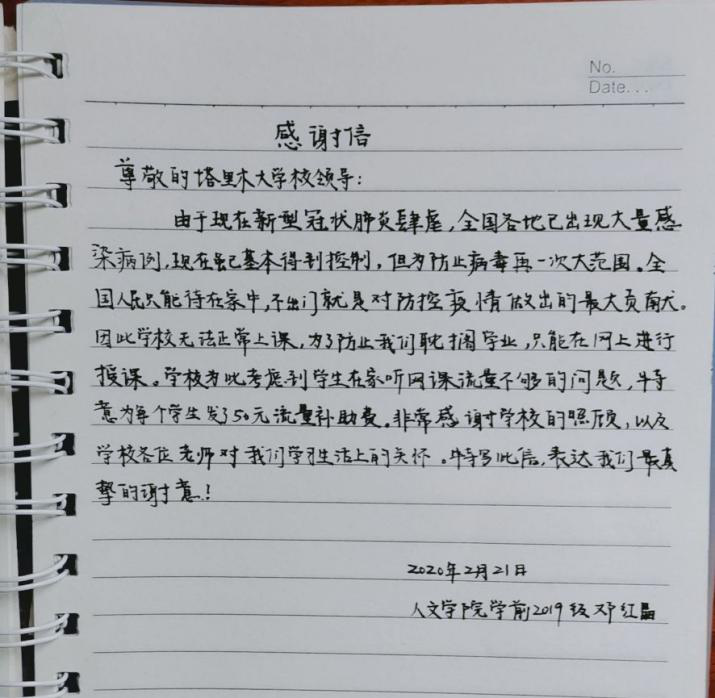 No.
Date...
感谢信
尊敬的塔里木大学校领导:
由于现在新型冠状肺炎肆虐,全国各地已出现大量感
染病例,现在虽已基本得到控制,但为防止病毒再一次大范围。全
国人民只能待在家中,不出门就是对防控疫情做出的最大贡献。
因此学校无法正常上课,为了防止我们耽搁学业,只能在网上进行
授课。学校为此考虑到学生在家听网课流量不够的问题,特
意为每个学生发了50元流量补助费。非常感谢学校的照顾,以及
学校各位老师对我们学习生活上的关怀。特写此信,表达我们最真
挚的谢意!
2020年2月21日
人文学院学前2019级邓红晶